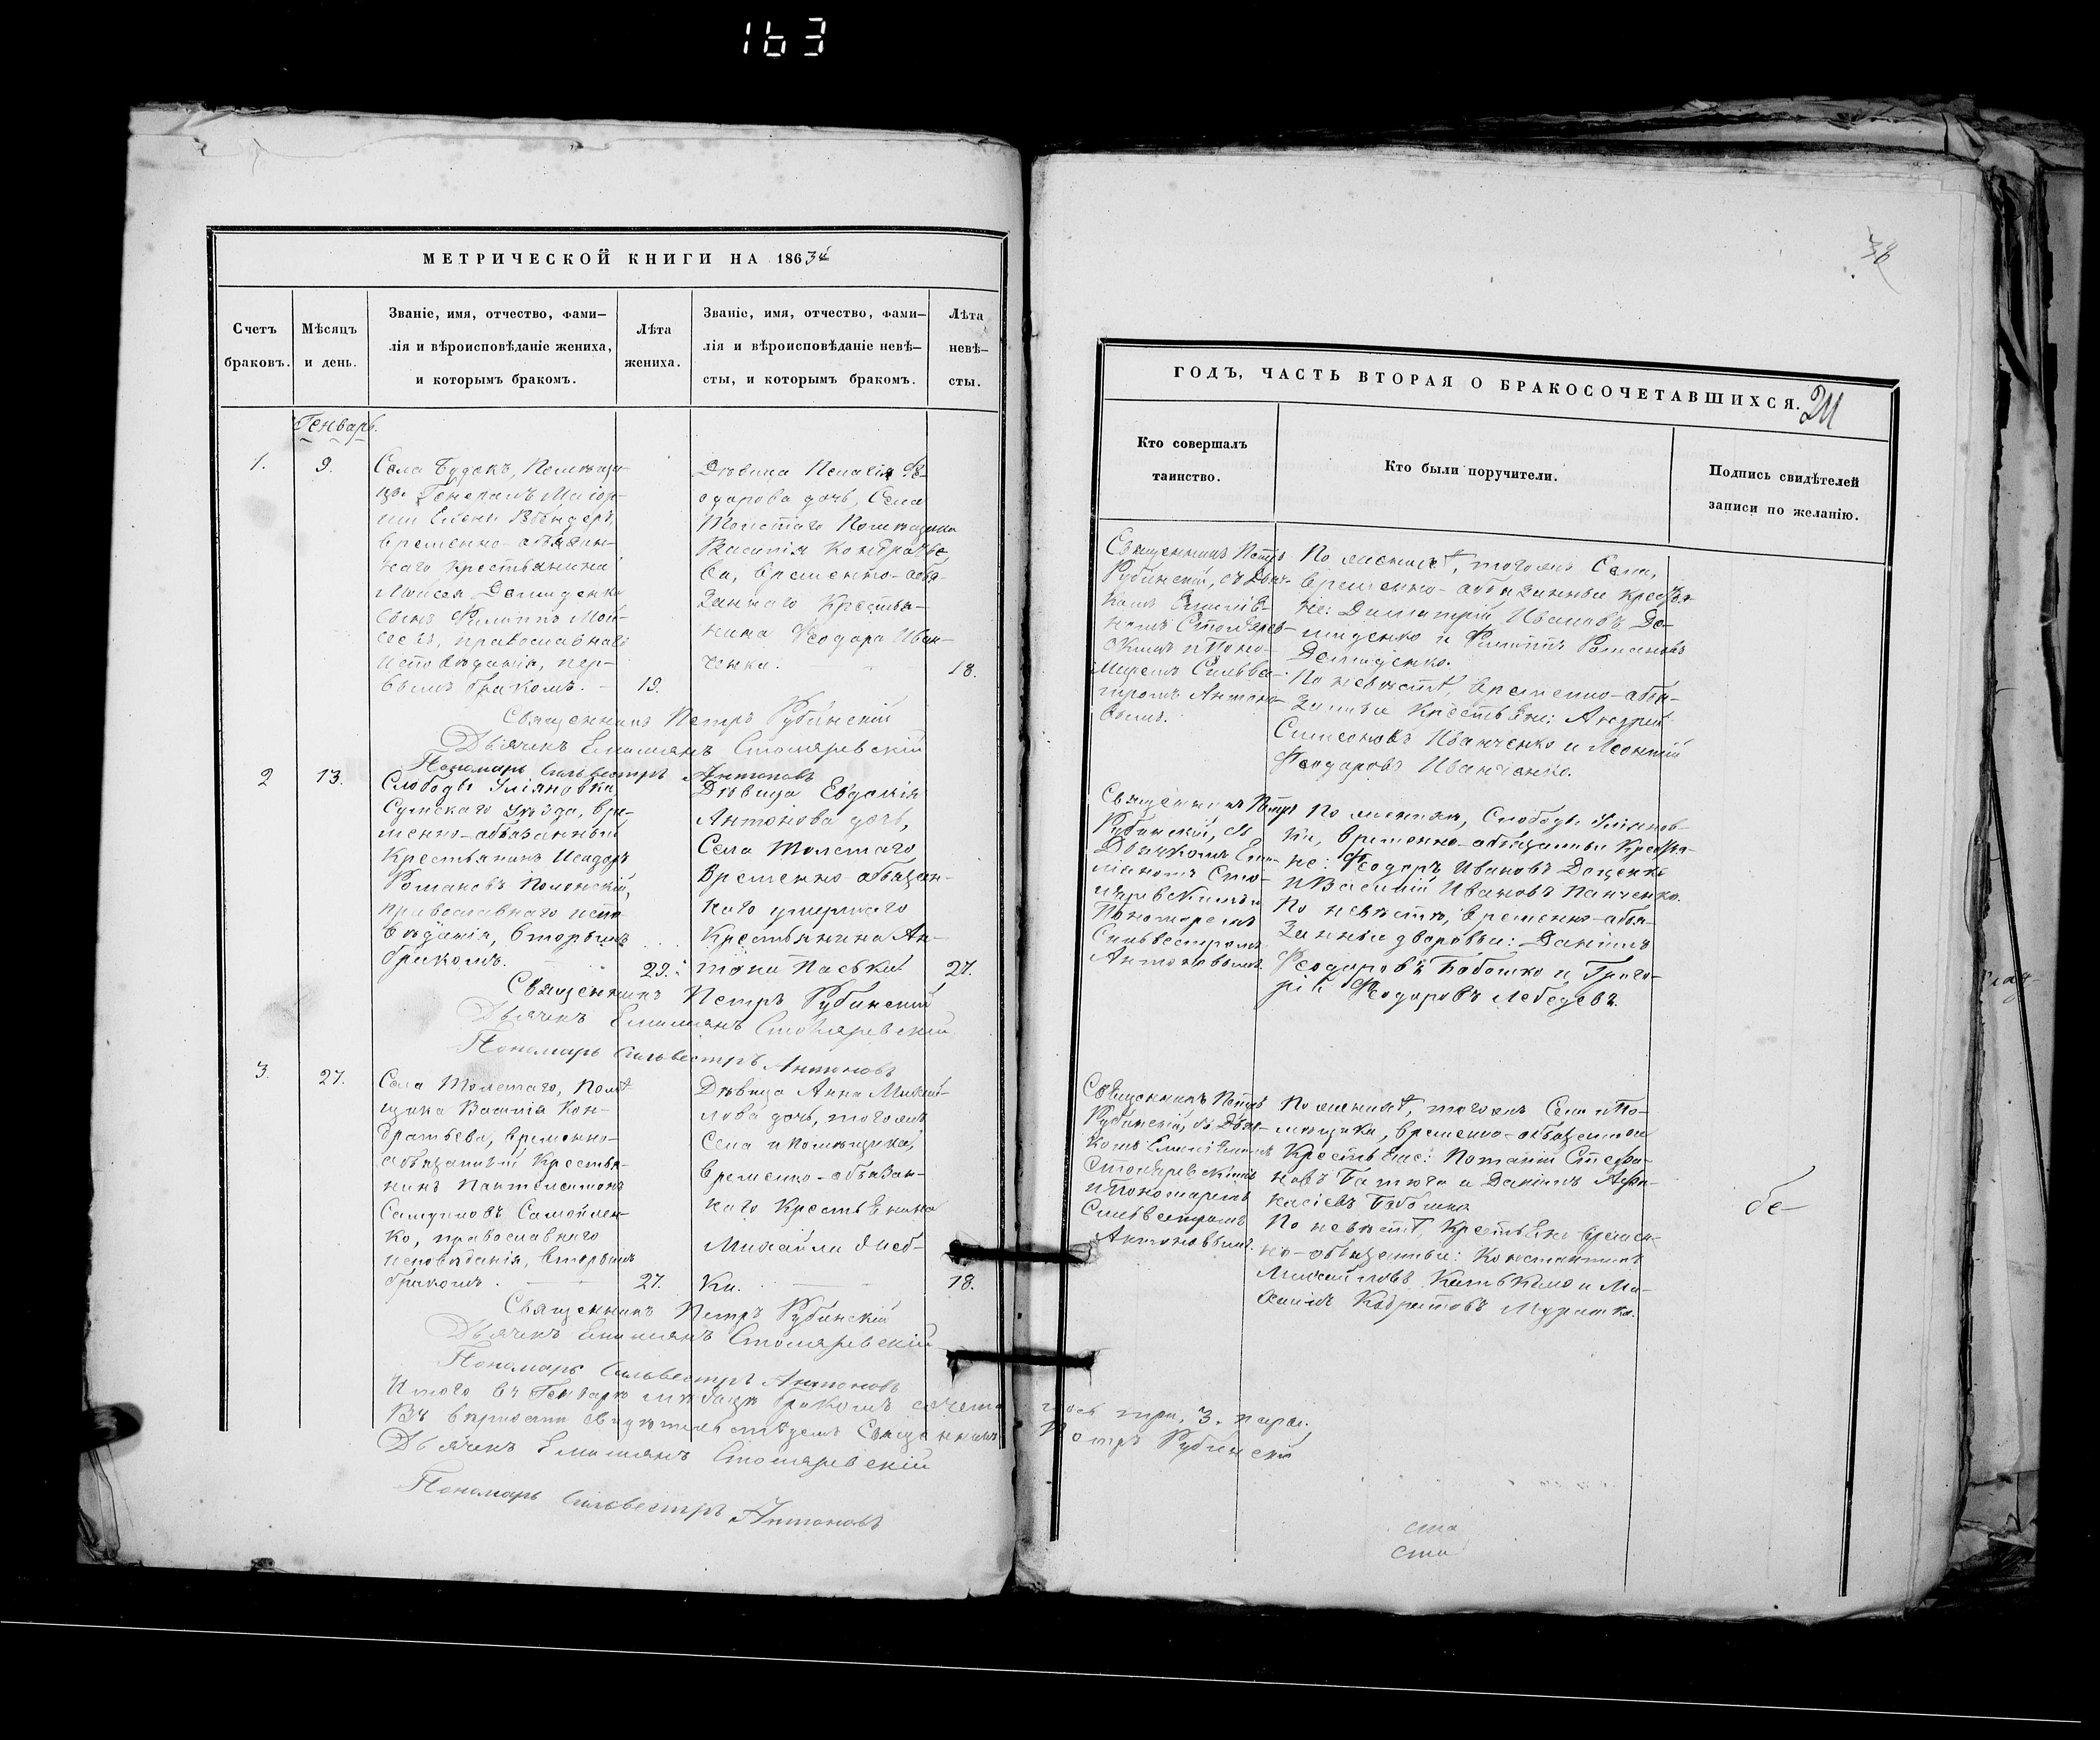 163
МЕТРИЧЕСКОЙ КНИГИ НА 1863й
Счетъ браковъ.
Мѣсяцъ и день.
Званіе, имя, отчество, фами-
лія и вѣроисповѣданіе жениха,
и которымъ бракомъ.
Лѣта жениха.
Званіе, имя, отчество, фами-
лія и вѣроисповѣданіе невѣ-
сты, и которымъ бракомъ.
Лѣта невѣ-
сты.
Генварь.
1.
9.
Села Будокъ, Помѣщи-
цы Генералъ Маіор-
ши Елены
временно-обязан-
наго крестьянина
Моисея Демиденко
сынъ Филиппъ Мои-
сеевъ, православнаго
исповѣданія, пер-
вымъ бракомъ.
19.
Дѣвица Пелагія Ѳе-
одорова дочь, Села
Толстаго Помѣщика
Василія Кондратье-
ва, временно-обя-
заннаго Крестья-
нина Ѳеодора Иван-
ченка.
18.
Священникъ Петръ Рубинскій
Дьячекъ Емиліянъ Столяревскій
Пономарь Сильвестръ Антоновъ
2
13.
Слободы Уліяновки
Сумскаго Уѣзда, вре-
менно-обязанный
Крестьянинъ Исидоръ
Романовъ Полонскій,
православнаго испо-
вѣданія, вторымъ
бракомъ.
29.
Дѣвица Евдокія
Антонова дочь,
Села Толстаго
Временно обязан-
наго умершаго
Крестьянина Ан-
тона Паськи
27.
Священникъ Петръ Рубинскій
Дьячекъ Емиліянъ Столяревскій
Пономарь Сильвестръ Антоновъ
3.
27.
Села Толстаго, Помѣ-
щика Василія Кон-
дратьева, временно-
обязанный Крестья-
нинъ Пантелеимонъ
Самуиловъ Самойлен-
ко, православнаго
исповѣданія, вторымъ
бракомъ.
27.
Дѣвица Анна Михай-
лова дочь, тогожъ
Села и Помѣщика,
временно-обязан-
наго Крестьянина
Михаила
ки.
18.
Священникъ Петръ Рубинскій
Дьячекъ Емиліянъ Столяревскій
Пономарь Сильвестръ Антоновъ
Итого въ Генварѣ мѣсяцѣ бракомъ сочета-
лось три, 3. пары.
Въ вѣрности свидѣтельствуемъ Священникъ
Петръ Рубинскій
Дьячекъ Емиліянъ Столяревскій
Пономарь Сильвестръ Антоновъ
ГОДЪ, ЧАСТЬ ВТОРАЯ О БРАКОСОЧЕТАВШИХСЯ.
Кто совершалъ
таинство.
Кто были поручители.
Подпись свидѣтелей
записи по желанію.
Священникъ Петръ
Рубинскій, съ Дьяч-
комъ Емилія-
номъ Столярев-
скимъ и Поно-
маремъ Сильве-
стромъ Антоно-
вымъ.
По женихѣ, тогожъ Села,
временно-обязанные крестья-
не: Димитрій Ивановъ Де-
миденко и Филиппъ Романовъ
Демиденко.
По невѣстѣ, временно-обя-
занные Крестьяне: Андрей
Симеоновъ Иванченко и Леонтій
Ѳеодоровъ Иванченко.
Священникъ Петръ
Рубинскій, съ
Дьячкомъ Еми-
ліаномъ Сто-
ляревскимъ и
Пономаремъ
Сильвестромъ
Антоновымъ.
По женихѣ, Слободы Уліянов-
ки, временно-обязанные Крестья-
не: Ѳеодоръ Ивановъ Доценко
и Василій Ивановъ Панченко.
По невѣстѣ, временно-обя-
занные дворовые: Даніилъ
Ѳеодоровъ Бабошко и Григо-
рій Ѳеодоровъ Лебедевъ.
Священникъ Петръ
Рубинскій, съ Дьяч-
комъ Емиліаномъ
Столяревскимъ
и Пономаремъ
Сильвестромъ
Антоновымъ.
По женихѣ, тогожъ Села и По-
мѣщика, временно-обязанные
Крестьяне: Потапій Стефа-
новъ Батюга и Даніилъ Аѳа-
насіевъ Бабошко
По невѣстѣ, Крестьяне времен-
но-обязанные: Константинъ
Михайловъ и Ми-
хаилъ
бе-
ста
сти